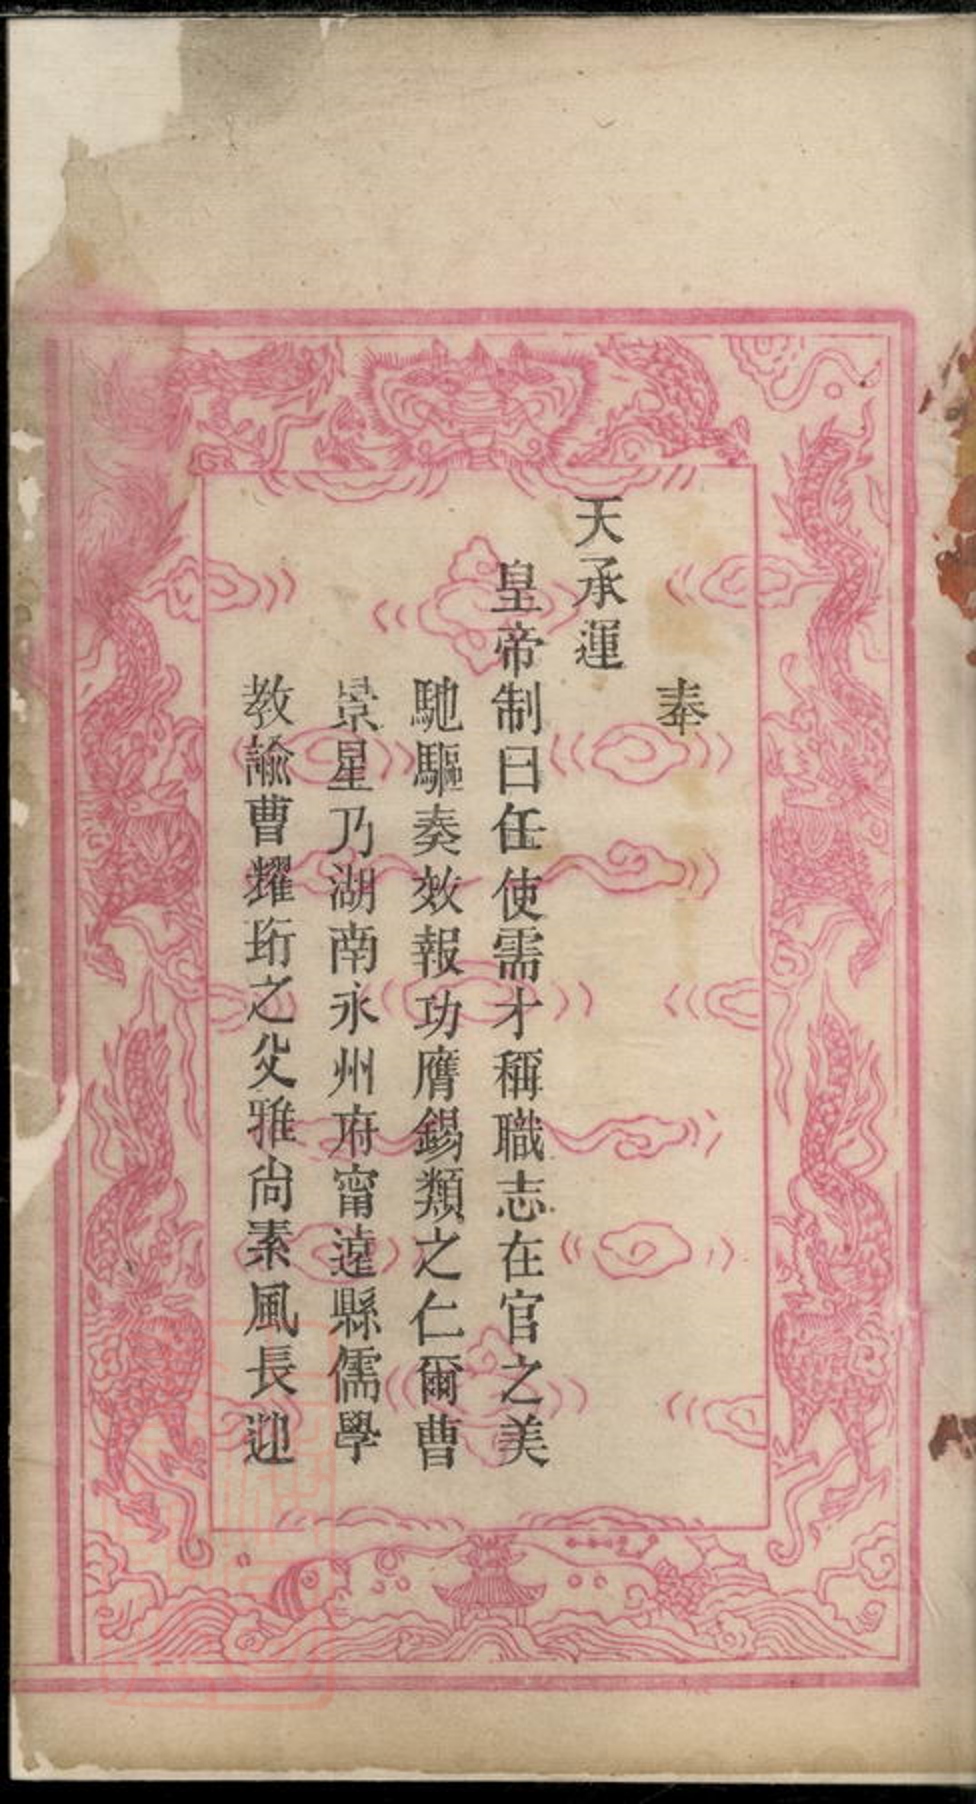 奉
天承運
皇帝制曰任使需才稱職志在官之美
馳驅奏效報功膺錫類之仁爾曹
景星乃湖南永州府甯遠縣儒學
教諭曹耀珩之父雅尙素風長迎